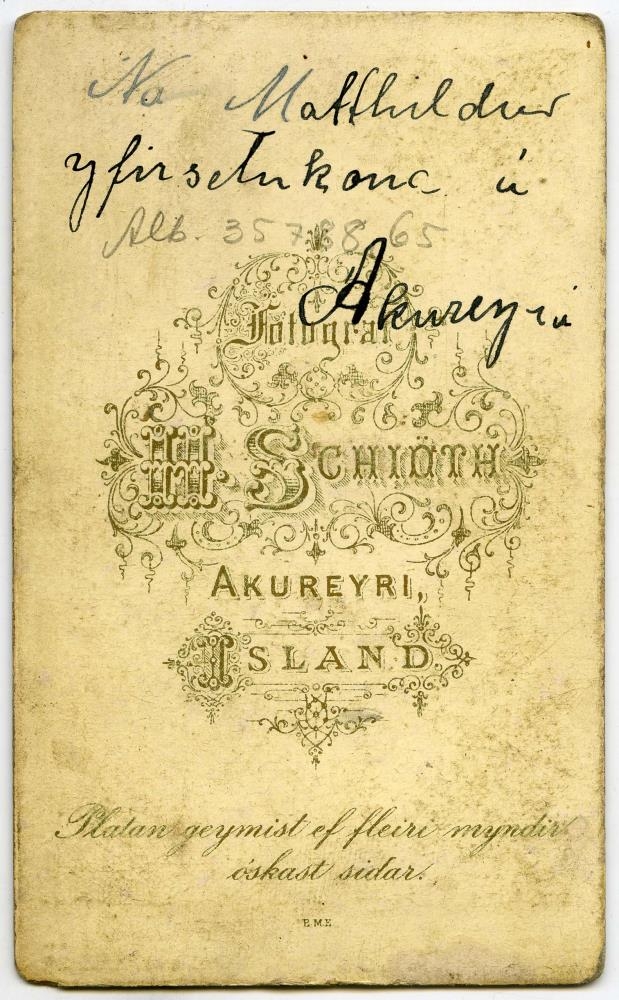 No Matthildur
yfirsetukona á
Alb. 35 7 8 8. 65
Akureyri
Fotograf
H. Schiöth
Akureyri,
Island
Platan geymist ef fleiri myndir
óskast sidar.